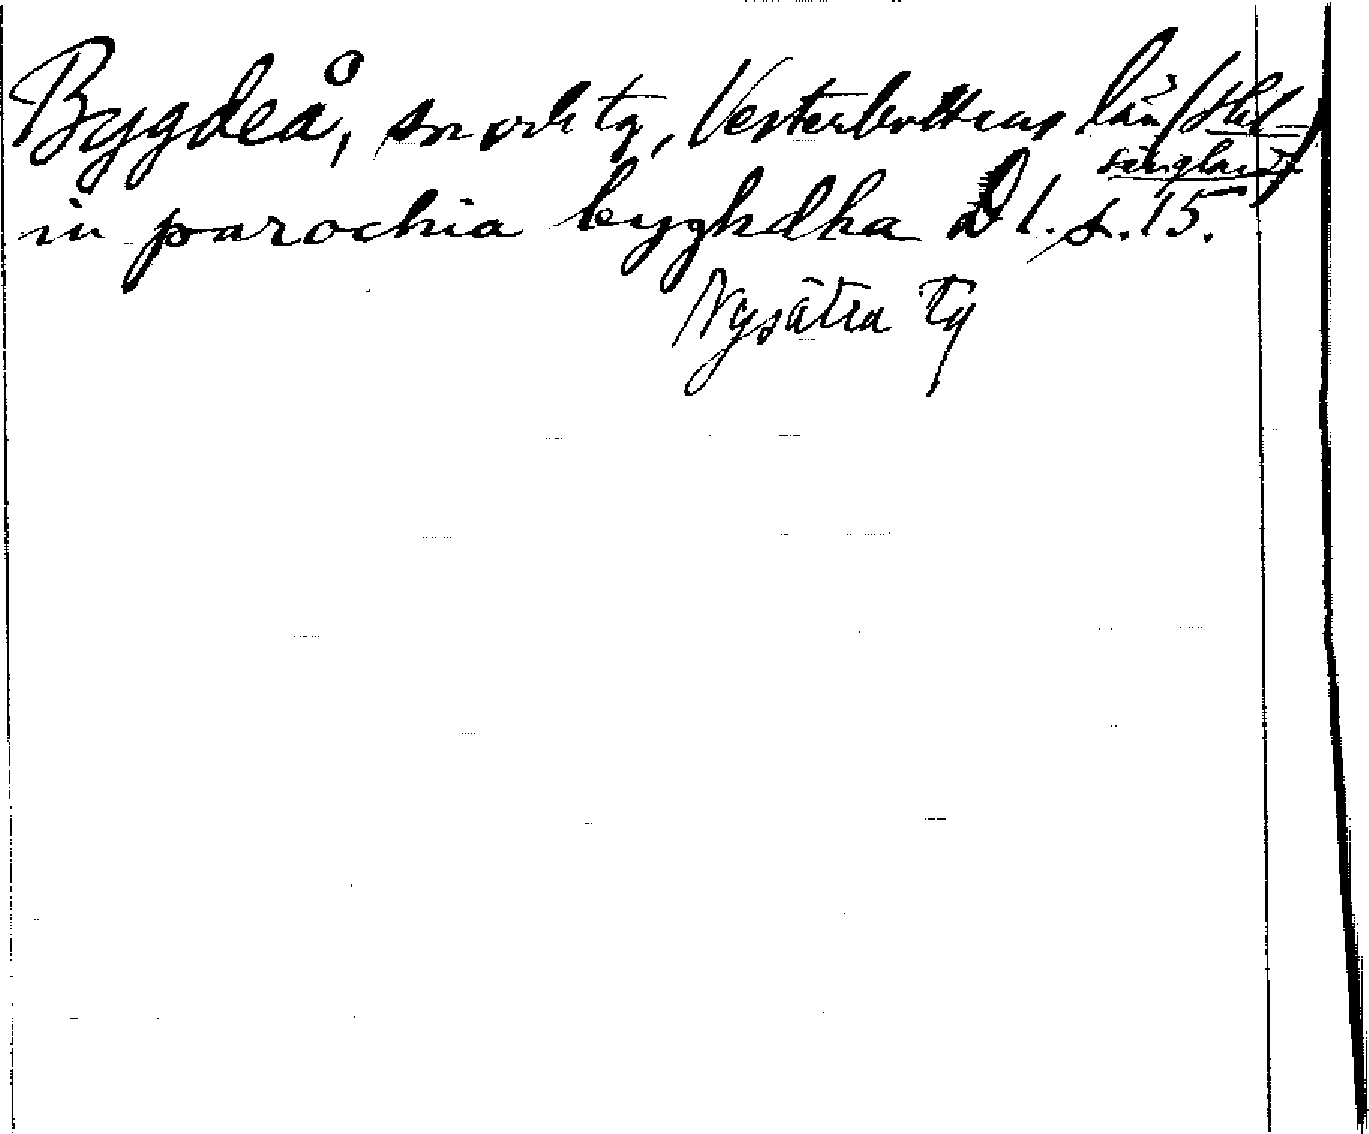 Bygdeå, sn och tg, Vesterbottens län (Hel-
singland)
in parochia byghdha D 1. s. 15.
Nysätra tg